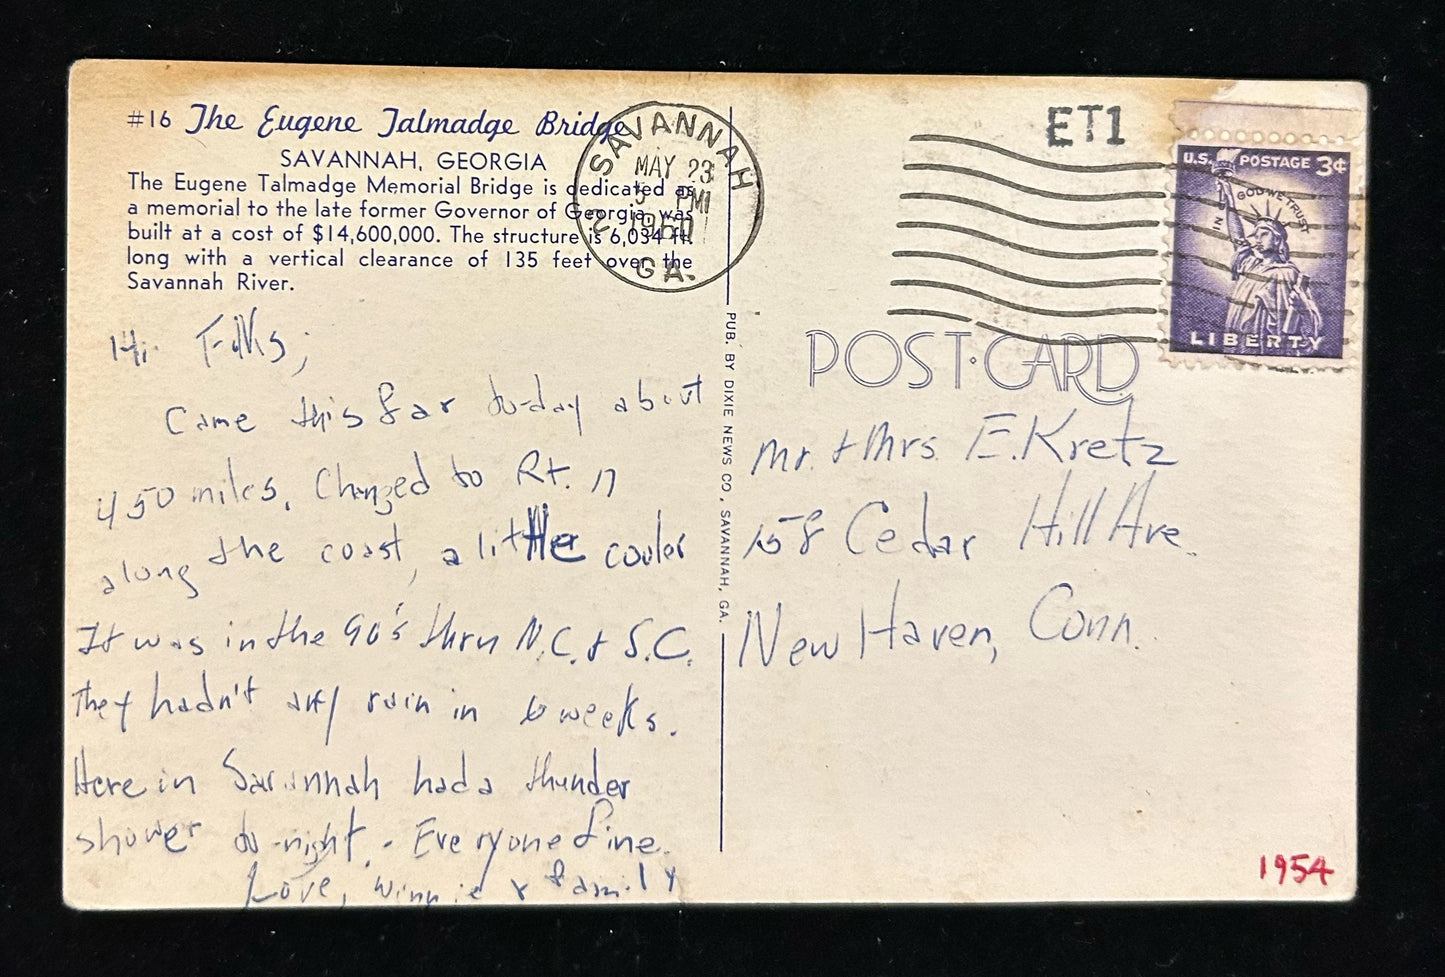 #16 The Eugene Talmadge Bridge
SAVANNAH, GEORGIA
The Eugene Talmadge Memorial Bridge is dedicated as
a memorial to the late former Governor of Georgia, was
built at a cost of $14,600,000. The structure is 6,034 ft.
long with a vertical clearance of 135 feet over the
Savannah River.
SAVANNAH
MAY 23
PM
GA.
ET1
U.S. POSTAGE 3¢
IN GOD WE TRUST
LIBERTY
Hi Folks,
Came this far to-day about
450 miles. Changed to Rt. 17
along the coast, a little cooler
It was in the 90's thru N.C. & S.C.
They hadn't any rain in 6 weeks.
Here in Savannah had a thunder
shower to-night. - Everyone fine.
Love, Winnie & family
PUB. BY DIXIE NEWS CO., SAVANNAH, GA.
POST CARD
Mr. & Mrs. E. Kretz
158 Cedar Hill Ave.
New Haven, Conn.
1954